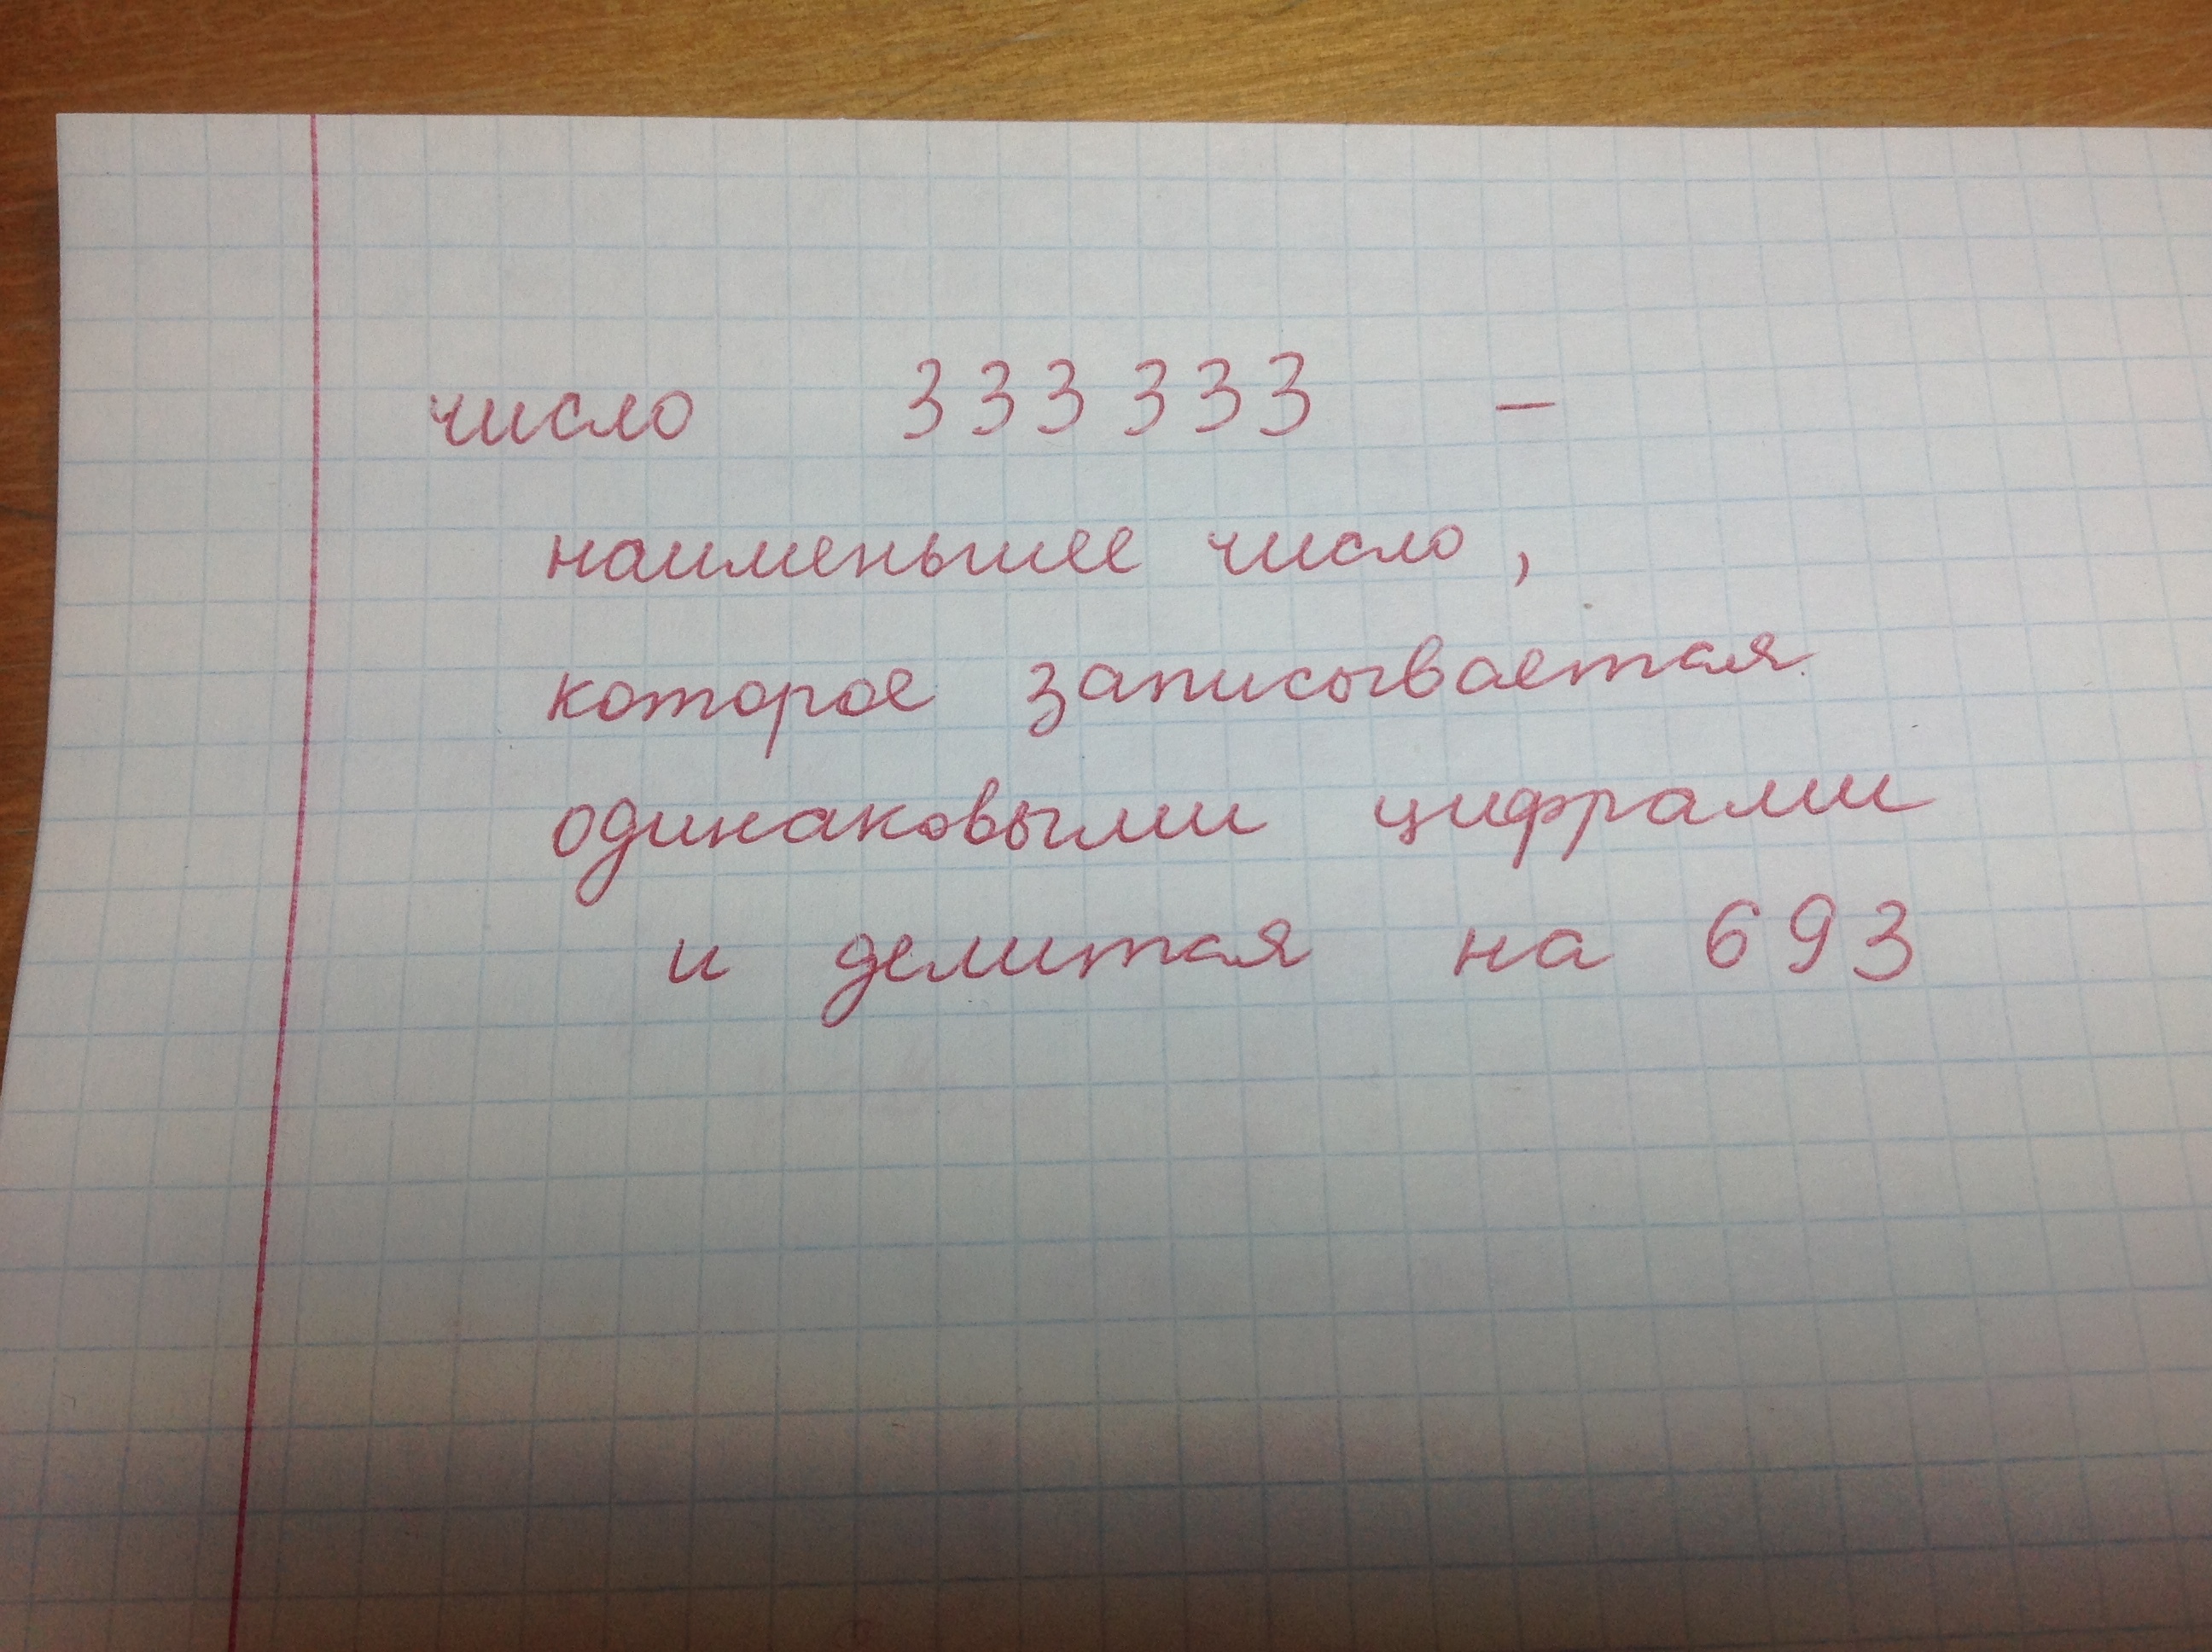 число 333 333 –
наименьшее число,
которое записывается
одинаковыми цифрами
и делится на 693